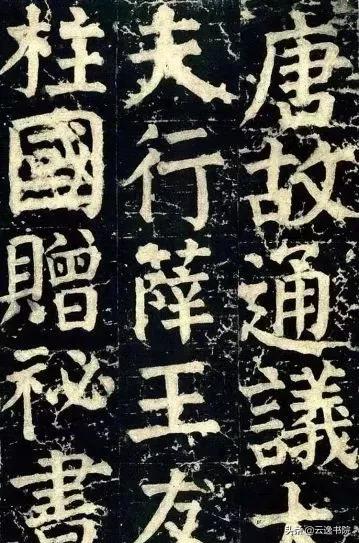 唐故通議大
夫行薛王友
柱國贈祕書
头条 @云逸书院